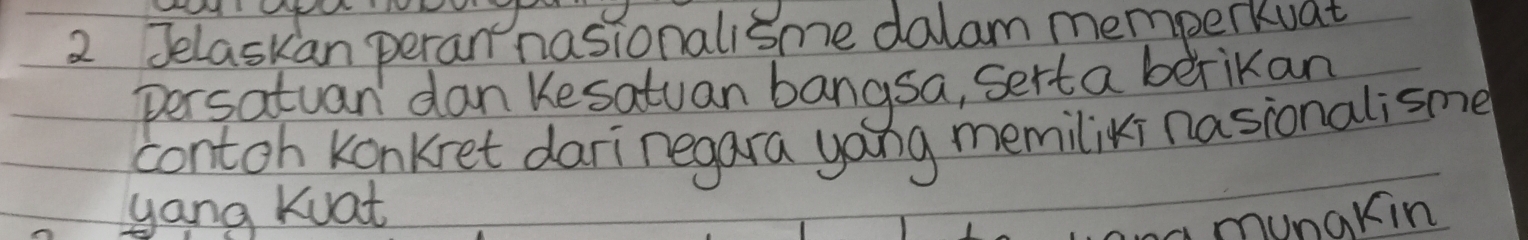 2 Jelaskan peran nasionalisme dalam memperkuat
persatuan dan Kesatuan bangsa, serta berikan
contoh konkret dari negara yang memiliki nasionalisme
yang kuat
mungkin